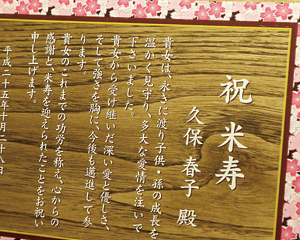 祝 米寿
久保 春子 殿
貴女は、永きに渡り子供・孫の成長を
温かく見守り、多大な愛情を注いで
下さいました。
貴女から受け継いだ深い愛と優しさ、
そして強さを胸に、今後も邁進して参
ります。
貴女のこれまでの功労を称え、心からの
感謝と、米寿を迎えられたことをお祝い
申し上げます。
平成二十五年十月二十八日